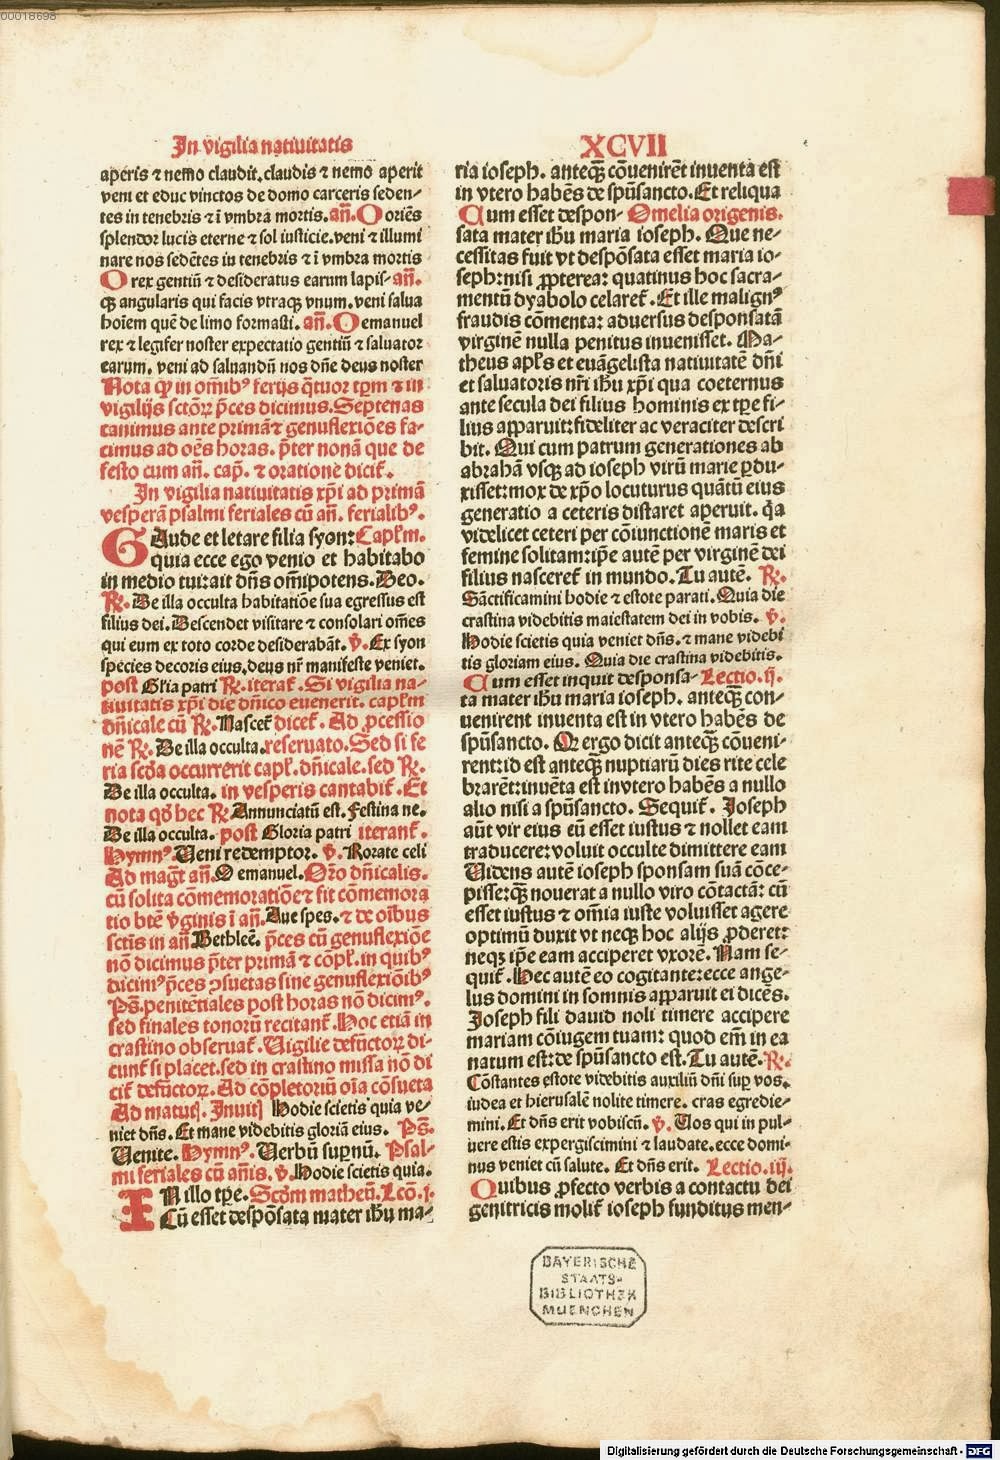 00018698
In vigilia natiuitatis
XCVII
aperis ⁊ nemo claudit. claudis ⁊ nemo aperit
veni et educ vinctos de domo carceris seden-
tes in tenebris ⁊ ī vmbra mortis. añ. O oriēs
splendor lucis eterne ⁊ sol iusticie. veni ⁊ illumi
nare nos sedētes in tenebris ⁊ ī vmbra mortis
O rex gentiū ⁊ desideratus earum lapis- añ.
qꝫ angularis qui facis vtraqꝫ vnum. veni salua
hoīem quē de limo formasti. añ. O emanuel
rex ⁊ legifer noster expectatio gentiū ⁊ saluator
earum. veni ad saluandū nos dñe deus noster
Nota ꝙ in omībꝰ ferijs q̄tuor tp̄m ⁊ in
vigilijs sctōꝝ p̄ces dicimus. Septenas
canimus ante primā ⁊ genuflexiōes fa-
cimus ad oēs horas. p̄ter nonā que de
festo cum añ. cap̄. ⁊ oratione dicit̄.
In vigilia natiuitatis xp̄i ad primā
vesperā psalmi feriales cū añ. ferialibꝰ.
GAude et letare filia syon: Capl̄m.
quia ecce ego venio et habitabo
in medio tui: ait dñs om̄ipotens. Deo.
℞. De illa occulta habitatiōe sua egressus est
filius dei. Descendet visitare ⁊ consolari om̄es
qui eum ex toto corde desiderabāt. ℣. Ex syon
species decoris eius. deus nr̄ manifeste veniet.
post Gl̄ia patri ℞. iterat̄. Si vigilia na-
tiuitatis xp̄i die dñico euenerit. capl̄m
dñicale cū ℞. Nascet̄ dicet̄. Ad ꝓcessio
nē ℞. De illa occulta. reseruato. Sed si fe
ria scd̄a occurrerit capl̄. dñicale. sed ℞.
De illa occulta. in vesperis cantabit̄. Et
nota qd̄ hec ℞ Annunciatū est. Festina ne.
De illa occulta. post Gloria patri iterant̄.
Hymnꝰ. Veni redemptor. ℣. Rorate celi
Ad maḡt añ. O emanuel. Or̄o dñicalis.
cū solita cōmemoratiōe ⁊ fit cōmemora
tio btē v̄ginis ī añ. Aue spes. ⁊ de oībus
sctīs in añ Bethleē. p̄ces cū genuflexiōe
nō dicimus p̄ter primā ⁊ cōpl̄. in quibꝰ
dicimꝰ p̄ces ꝯsuetas sine genuflexiōibꝰ
Ps̄. penitētiales post horas nō dicimꝰ.
sed finales tonorū recitant̄. Hoc etiā in
crastino obseruat̄. Vigilie defūctoꝝ di-
cunt̄ si placet. sed in crastino missa nō di
cit̄ defūctoꝝ. Ad cōpletoriū oīa cōsueta
Ad matuꝭ. Inuiꝭ Hodie scietis quia ve-
niet dñs. Et mane videbitis gloriā eius. Ps̄.
Venite. Hymnꝰ. Verbū supꝛnū. Psal-
mi feriales cū añis. ℣. Hodie scietis quia.
IN illo tp̄e. Scd̄m matheū. Lcō. j.
Cū esset despōsata mater ih̄u ma-
ria ioseph. anteqꝫ cōuenirēt inuenta est
in vtero habēs de spūsancto. Et reliqua
Cum esset despon- Omelia origenis.
sata mater ih̄u maria ioseph. Que ne-
cessitas fuit vt despōsata esset maria io-
seph: nisi ꝓpterea: quatinus hoc sacra-
mentū dyabolo celaret̄. Et ille malignꝰ
fraudis cōmenta: aduersus desponsatā
virginē nulla penitus inuenisset. Ma-
theus apl̄s et euāgelista natiuitatē dñi
et saluatoris nr̄i ih̄u xp̄i qua coeternus
ante secula dei filius hominis ex tp̄e fi-
lius apparuit: fideliter ac veraciter descri
bit. Qui cum patrum generationes ab
abrahā vsqꝫ ad ioseph virū marie ꝑdu-
xisset: mox de xp̄o locuturus quātū eius
generatio a ceteris distaret aperuit. q̄a
videlicet ceteri per cōiunctionē maris et
femine solitam: ip̄e autē per virginē dei
filius nasceret̄ in mundo. Tu autē. ℞.
Sāctificamini hodie ⁊ estote parati. Quia die
crastina videbitis maiestatem dei in vobis. ℣.
Hodie scietis quia veniet dñs. ⁊ mane videbi
tis gloriam eius. Quia die crastina videbitis.
Cum esset inquit desponsa- Lectio. ij.
ta mater ih̄u maria ioseph. anteqꝫ con-
uenirent inuenta est in vtero habēs de
spūsancto. Qꝛ ergo dicit anteqꝫ cōueni-
rent: id est anteqꝫ nuptiarū dies rite cele
brarēt: inuēta est invtero habēs a nullo
alio nisi a spūsancto. Sequit̄. Joseph
aūt vir eius cū esset iustus ⁊ nollet eam
traducere: voluit occulte dimittere eam
Videns autē ioseph sponsam suā cōce-
pisse: qꝫ nouerat a nullo viro cōtactā: cū
esset iustus ⁊ om̄ia iuste voluisset agere
optimū duxit vt neqꝫ hoc alijs ꝓderet:
neqꝫ ip̄e eam acciperet vxorē. Nam se-
quit̄. Hec autē eo cogitante: ecce ange-
lus domini in somnis apparuit ei dicēs.
Joseph fili dauid noli timere accipere
mariam cōiugem tuam: quod em̄ in ea
natum est: de spūsancto est. Tu autē. ℞.
Cōstantes estote videbitis auxiliū dñi suꝑ vos.
iudea et hierusalē nolite timere. cras egredie-
mini. Et dñs erit vobiscū. ℣. Vos qui in pul-
uere estis expergiscimini ⁊ laudate. ecce domi-
nus veniet cū salute. Et dñs erit. Lectio. iij.
Quibus ꝓfecto verbis a contactu dei
genitricis molit̄ ioseph funditus men-
BAYERISCHE
STAATS-
BIBLIOTHEK
MUENCHEN
Digitalisierung gefördert durch die Deutsche Forschungsgemeinschaft - DFG